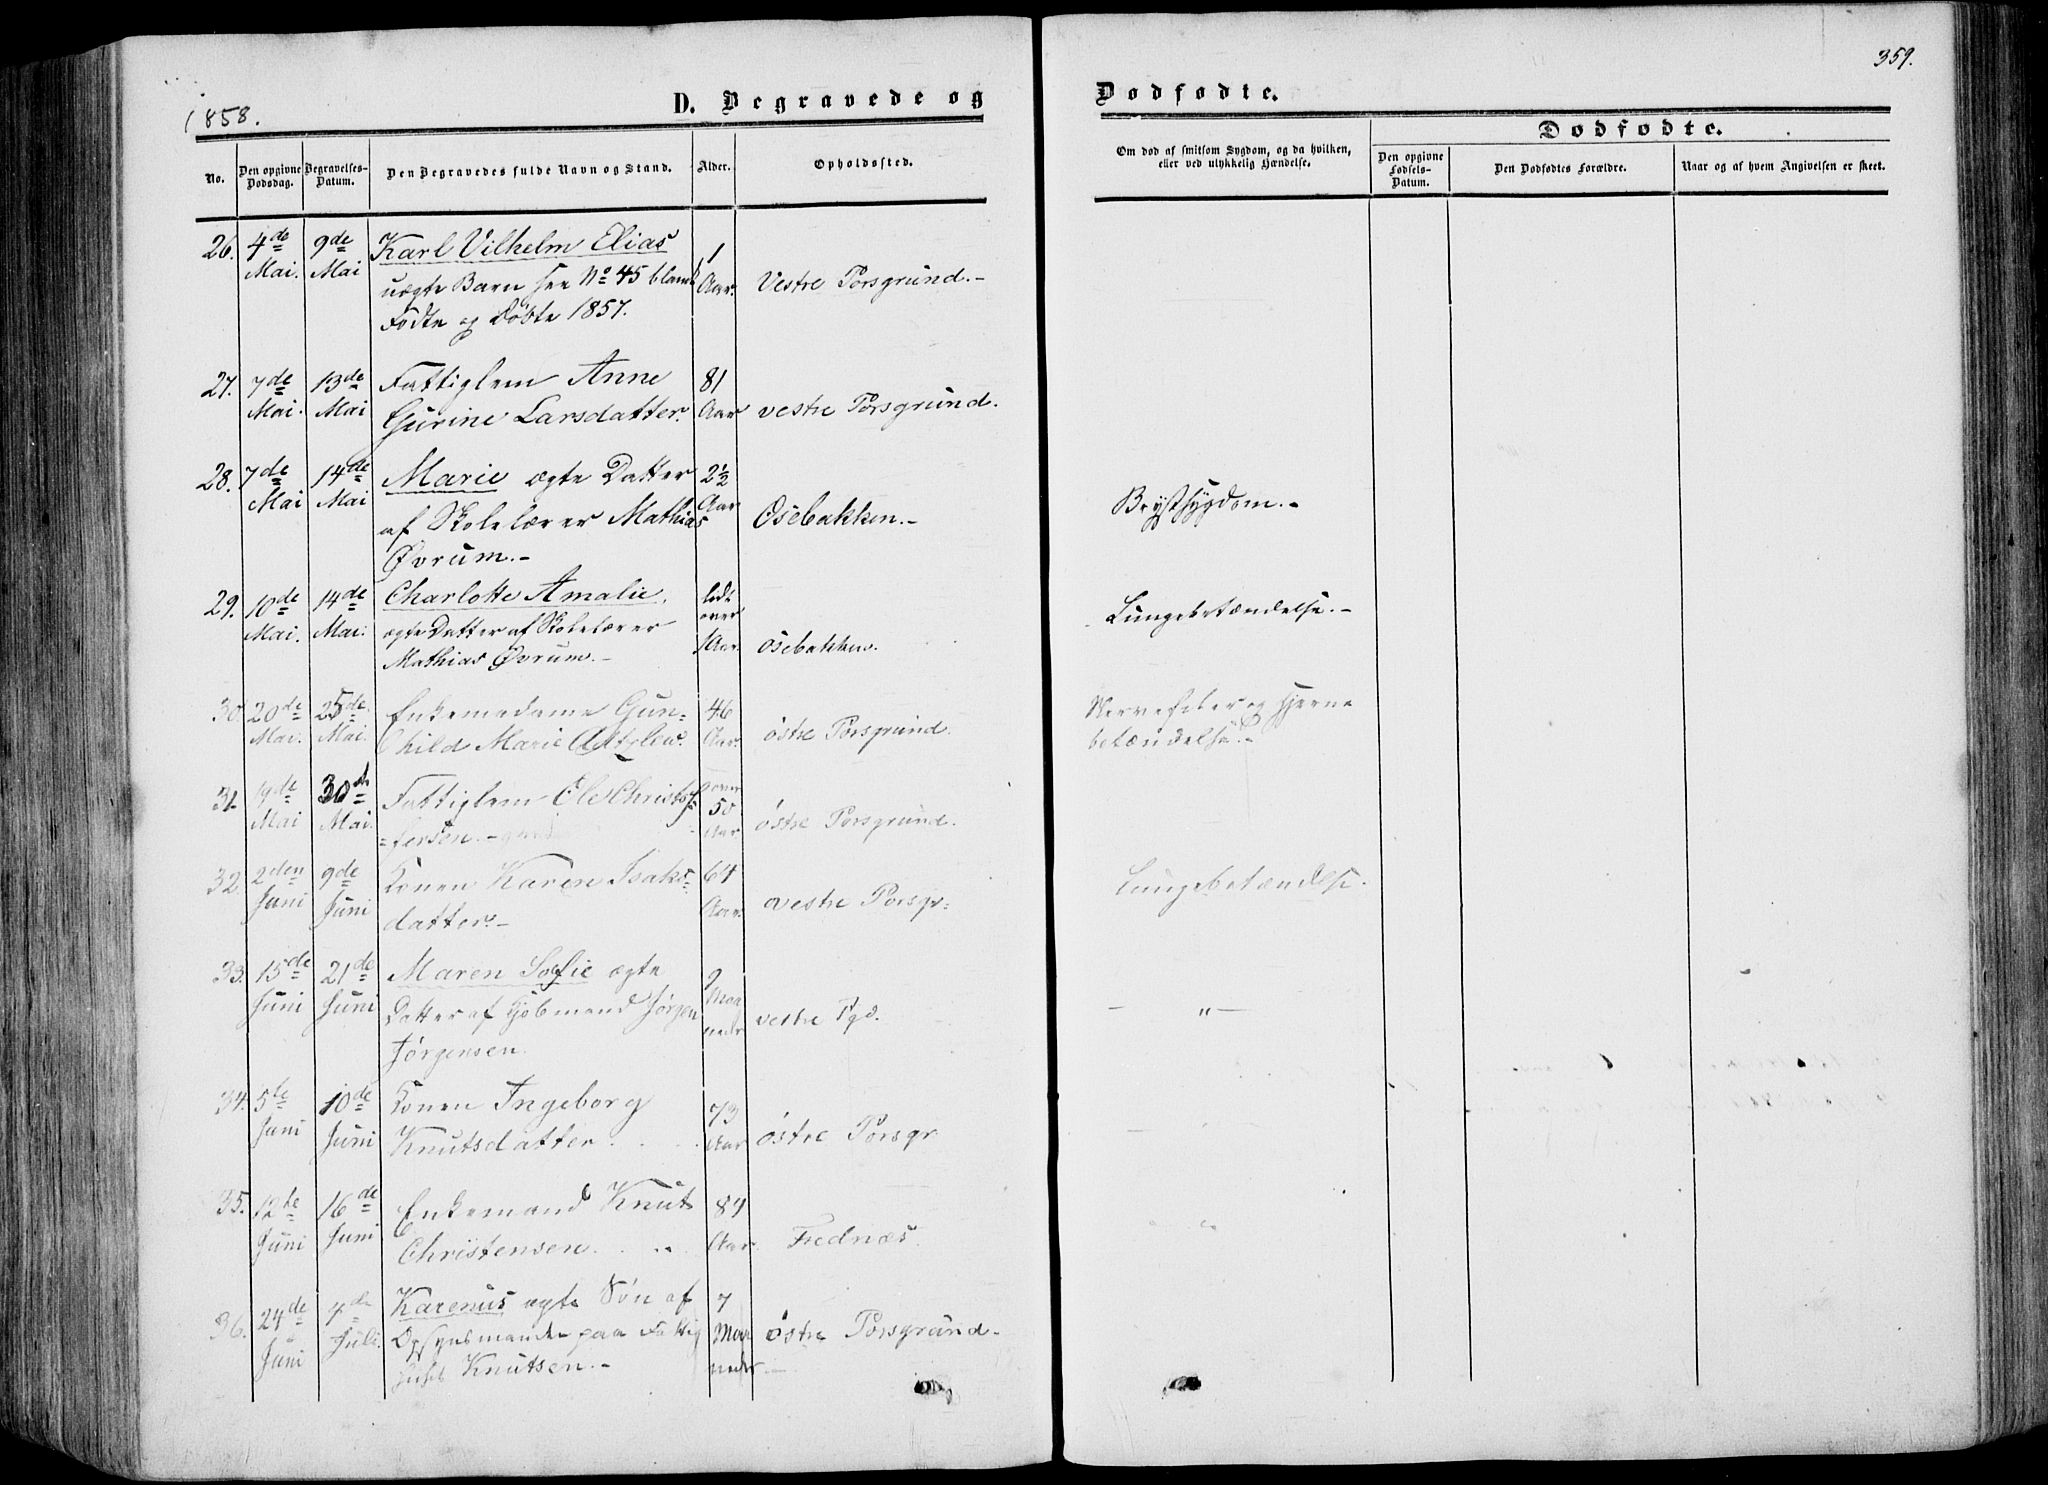 359.
1858.
D. Begravede og
Dødfødte.
No.
Den opgivne Dødsdag.
Begravelses-Datum.
Den Begravedes fulde Navn og Stand.
Alder.
Opholdssted.
Om død af smitsom Sygdom, og da hvilken,
eller ved ulykkelig Hændelse.
Dødfødte.
Den opgivne Fødsels-Datum.
Den Dødfødtes Forældre.
Naar og af hvem Angivelsen er skeet.
26. 4de 9de Karl Vilhelm Elias 1
Mai. Mai uægte Barn see No 45 blandt Aar. Vestre Porsgrund.-
Fødte og Døbte 1857.
27. 7de 13de Fattiglem Anne 81
Mai. Mai Gurine Larsdatter. Aar vestre Porsgrund.
28. 7de 14de Marie ægte Datter 2½
Mai Mai af Skolelærer Mathias Aar Osebakken.- Brystsygdom.-
Øvrum.-
29. 10de 14de Charlotte Amalie,
Mai. Mai. ægte Datter af Skolelærer over Lungebetændelse.-
Mathias Øvrum.- 1 Aar. Osebakken.
30. 20de 25de Enkemadame Gun- 46 Nervefeber og Hjerne
Mai. Mai. hild Marie Aar. østre Porsgrund. betændelse.-
31. 19de 30de Fattiglem Ole Christof over 50
Mai Mai. =fersen.- Aar østre Porsgrund.
32. 2den 9de Konen Karen Isaks- 64 Lungebetændelse.
Juni Juni datter.- Aar. vestre Porsgr=
33. 15de 21de Maren Sofie ægte 9
Juni Juni Datter af Jørgen Maa neder vestre Pgd. - " -
Jørgensen.
34. 5te 10de Konen Ingeborg 73
Juni Juni Knutsdatter Aar østre Porsgr
35. 12te 16de Enkemand Knut 89
Juni Juni Christensen. Aar. Frednæs.
36. 24de 4de Karenus ægte Søn af 7
Juni Juli. Opsynsmanden paa Fattig Maa østre Porsgrund.
huset Knutsen.- neder.-